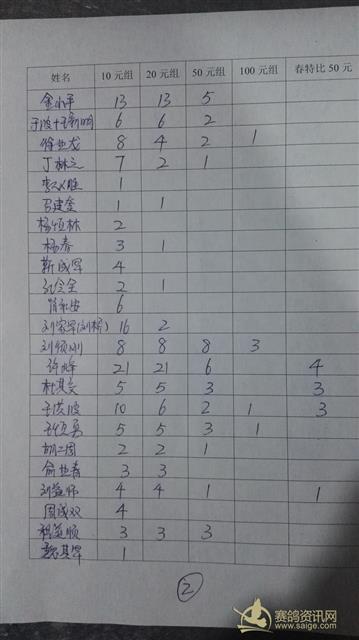 姓名 10元组 20元组 50元组 100元组 春特比50元
金小平 13 13 5
6 6 2
徐业龙 8 4 2 1
丁林之 7 2 1
1
吕建奎 1 1
杨恒林 2
杨春 3 1
靳成军 4
2 1
肖永安 6
刘家军(刘桥) 16 2
刘领刚 8 8 8 3
许峰 21 21 6 4
杜其文 5 5 3 3
于洪波 10 6 2 1 3
5 5 3 1
胡二周 2 2 1
俞业春 3 3
刘益师 4 4 1 1
周成双 4
程益顺 3 3 3
魏其军 1
2
赛鸽资讯网
www.saige.com